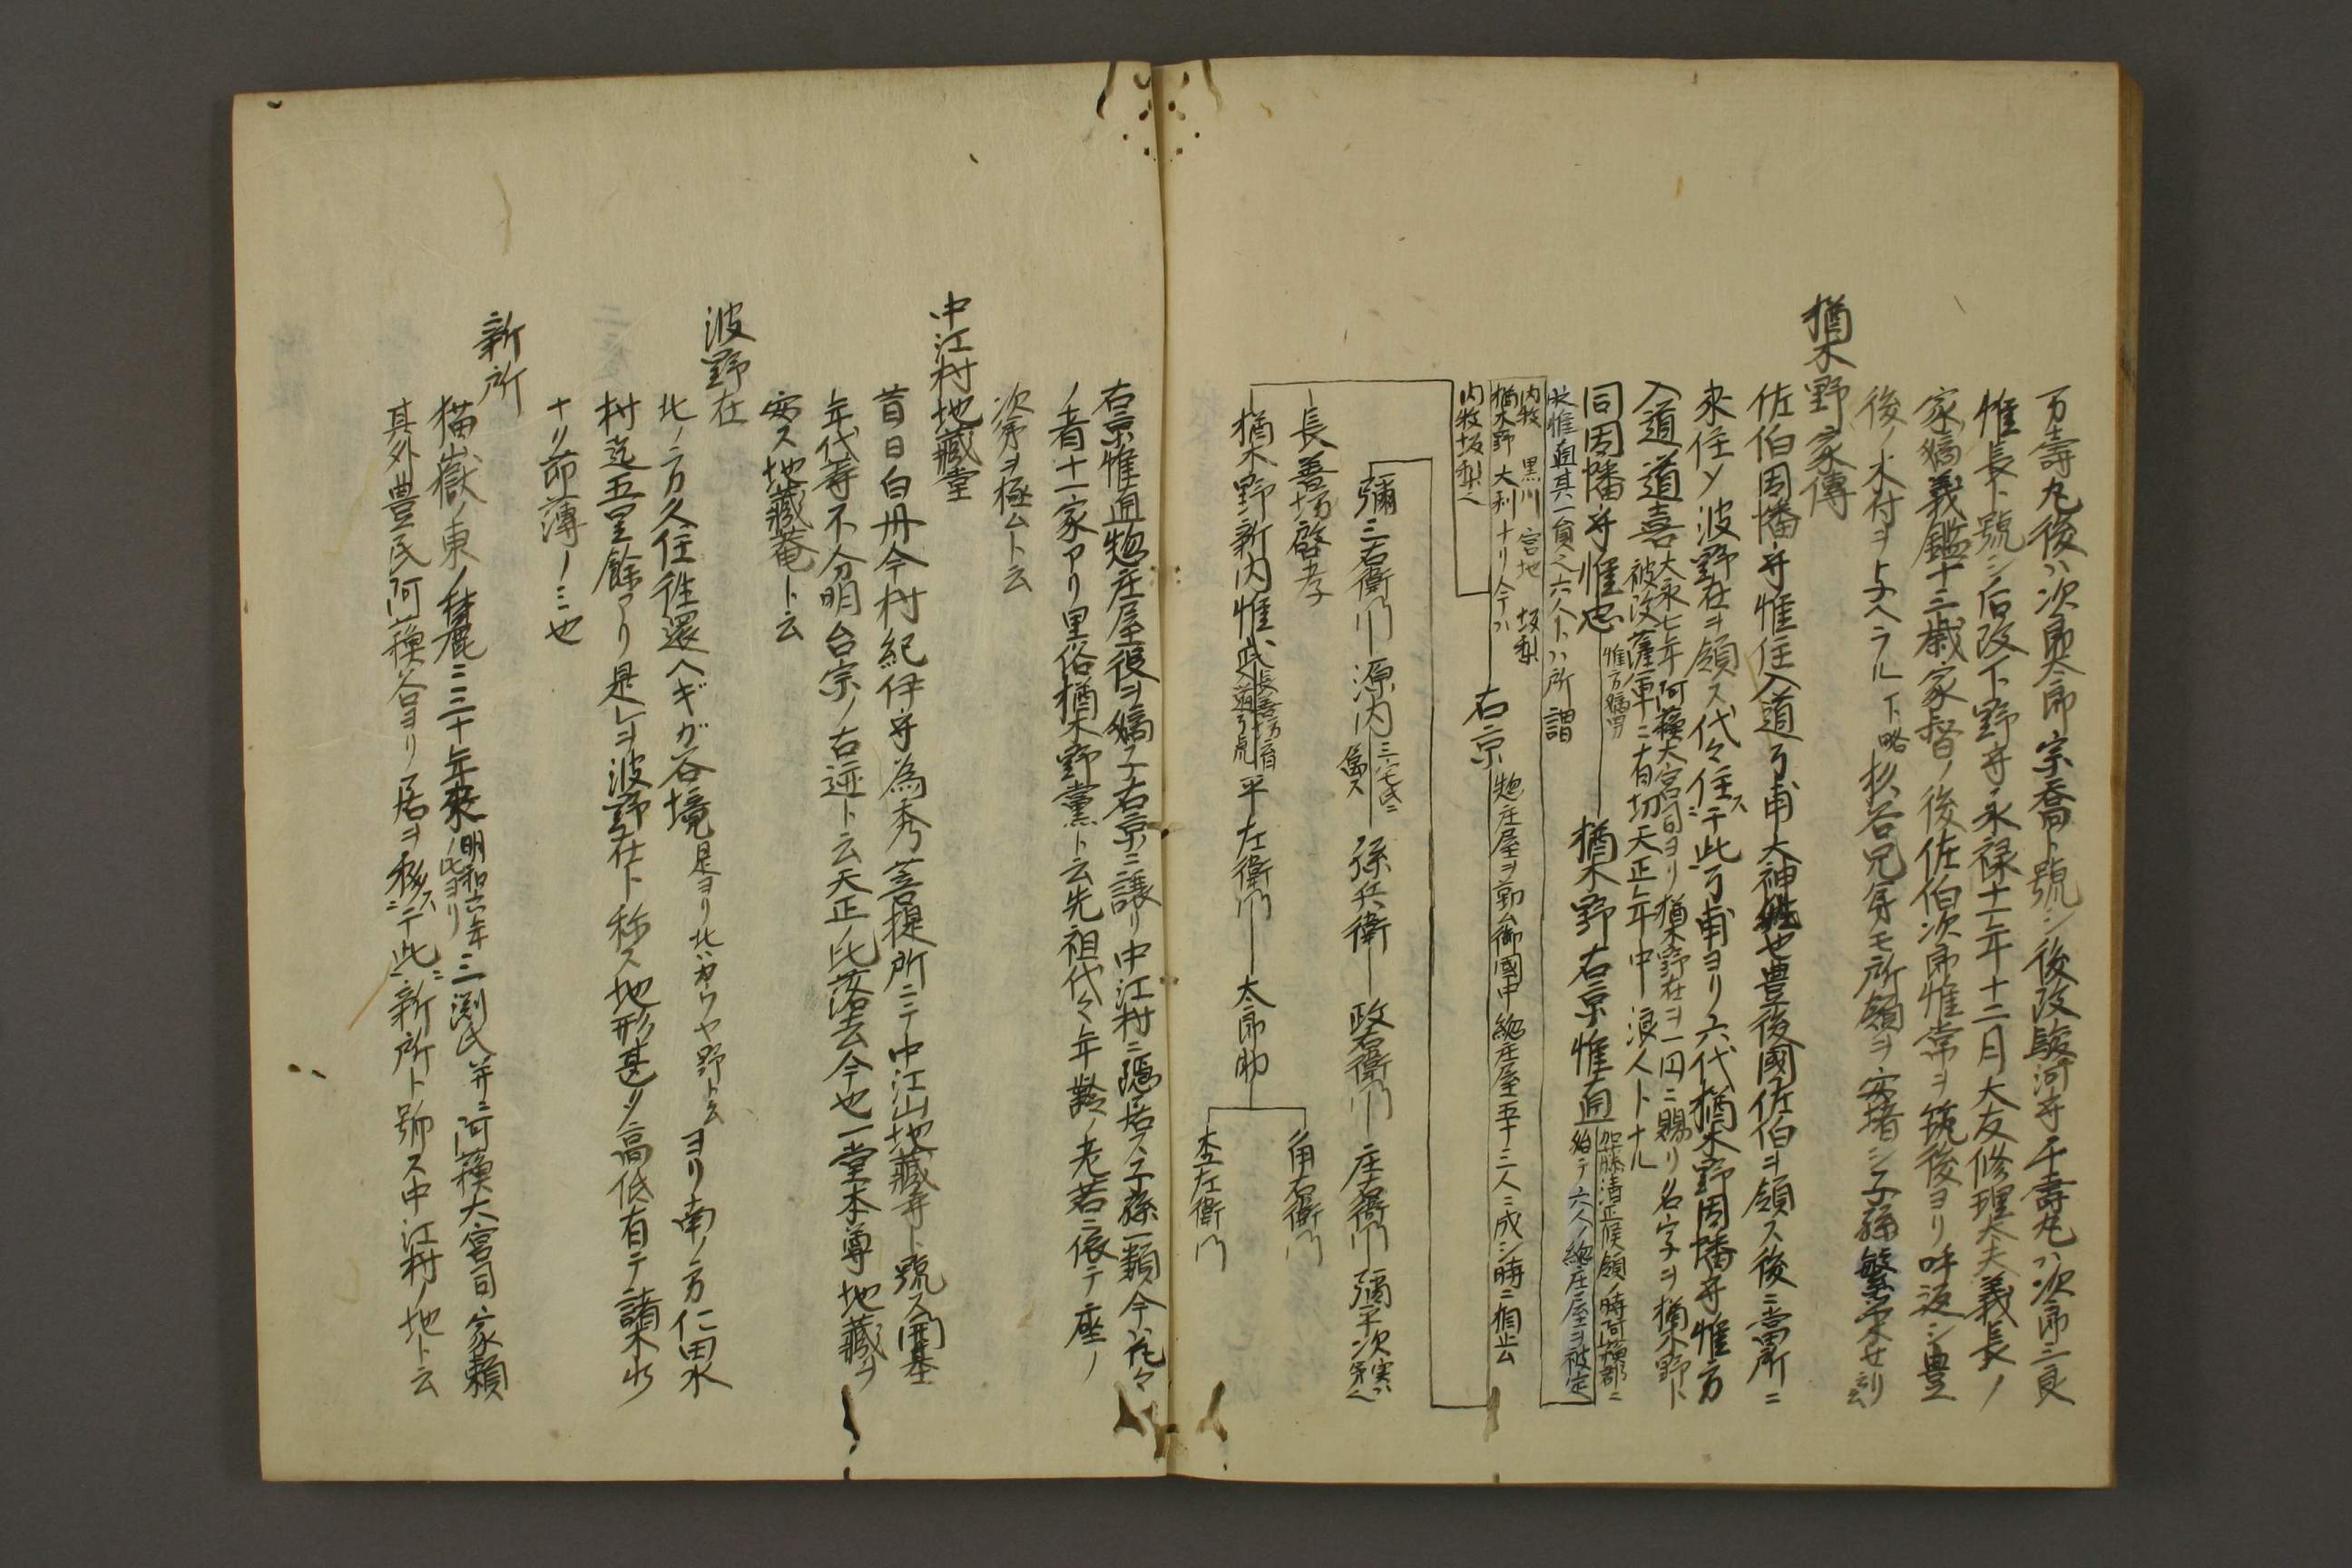 万壽丸後ハ次郎太郎宗喬ト號シ後改駿河守千壽丸ハ次郎三良
惟長ト號シ后改下野守永禄十一年十二月大友修理大夫義長ノ
家嫡義鑑十三歳家督ノ後佐伯次郎惟常ヲ筑後ヨリ呼返シ豊
後ノ木付ヲ与ヘラル下略杉谷兄弟モ所領ヲ安堵シ子孫繁榮セリ云
楢木野家傳
佐伯因幡守惟住入道了甫大神姓也豊後國佐伯ヲ領ス後ニ當所ニ
来住シ波野在ヲ領ス代々住ス于此ニ了甫ヨリ六代楢木野因幡守惟方
入道道喜
大永七年阿蘓大宮司ヨリ楢木野在ヲ一円ニ賜リ名字ヲ楢木野ト
被没薩軍ニ有切天正年中浪人トナル
同因幡守惟忠
惟方嫡男
楢木野右京惟通
加藤清正候領ノ時阿蘓郡ニ
始テ六人ノ総庄屋ヲ被定
此惟通其一員之六人トハ所謂
内牧 黒川 宮地 坂梨
楢木野 大利ナリ今ハ
内牧坂梨ヘ
右京
惣庄屋ヲ勤ム御國中総庄屋五十三人ニ成シ時ニ相止ム
彌三右衛門 源内
三宅氏ニ
為ス
孫兵衛 政右衛門 庄右衛門 彌平次
実ハ
弟ヘ
長善坊啓孝
楢木野新内惟武
長善坊二男
入道了虎
平左衛門 太郎助
角右衛門
杢左衛門
右京惟通惣庄屋役ヲ嫡子右京ニ譲リ中江村ニ隠居ス子孫一類今ハ花々
ノ者十一家アリ里俗楢木野黨ト云先祖代々年齢ノ老若ニ依テ座ノ
次第ヲ極ムト云
中江村地藏堂
昔日白丹今村紀伊守為秀菩提所ニテ中江山地藏寺ト號ス開基
年代等不分明台宗ノ古迹ト云天正ノ比落去今也一堂本尊地藏ヲ
安ス地藏菴ト云
波野在
北ノ方久住往還ヘギガ谷境是ヨリ北ハカウヤ野ト云ヨリ南ノ方仁田水
村迄五里餘アリ是ヲ波野在ト称ス地形甚シ高低有テ諸木少
ナリ茆薄ノミ也
新所
猫嶽ノ東ノ麓ニ三十年來
明和六年
ノ比ヨリ
三渕氏并ニ阿蘓大宮司家頼
其外豊民阿蘓谷ヨリ居ヲ移ス于此ニ新所ト號ス中江村ノ地ト云